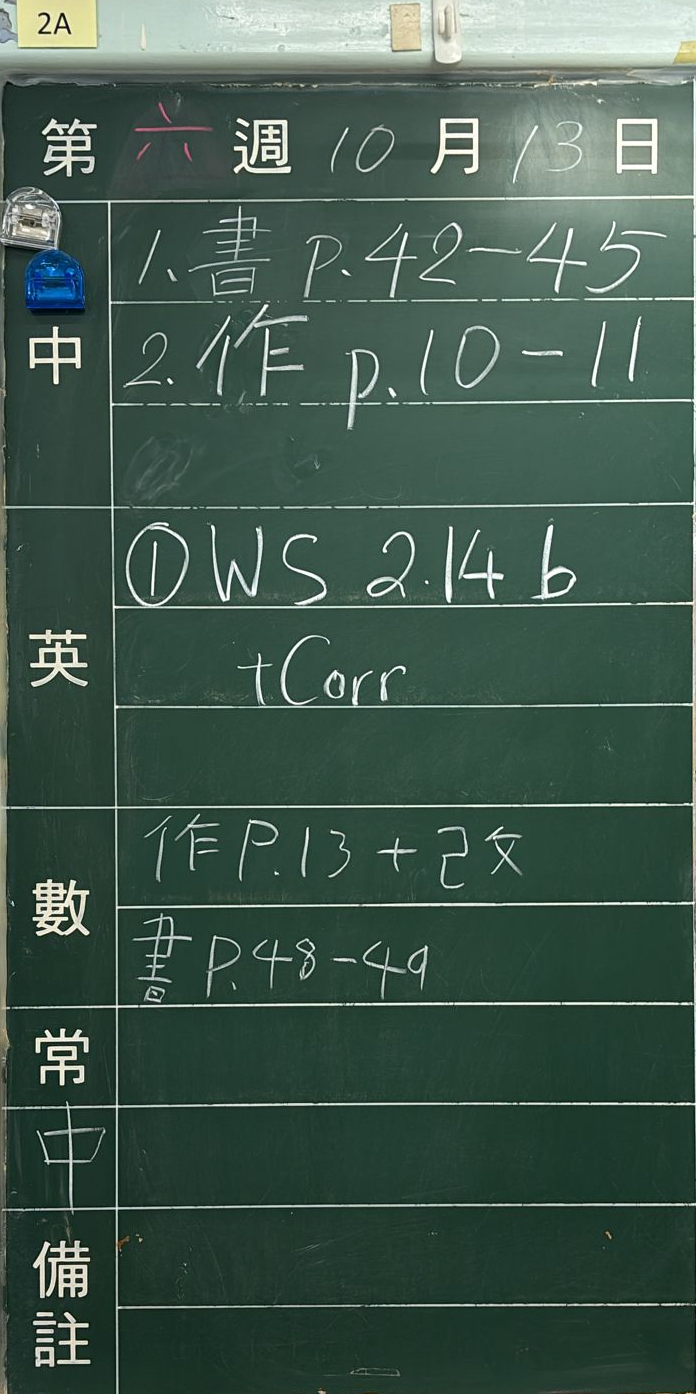 2A
第六週10月13日
中
1.書 P.42-45
2.作 p.10-11
英
① WS 2.14 b
+Corr
數
作P.13+改
書P.48-49
常
中
備註